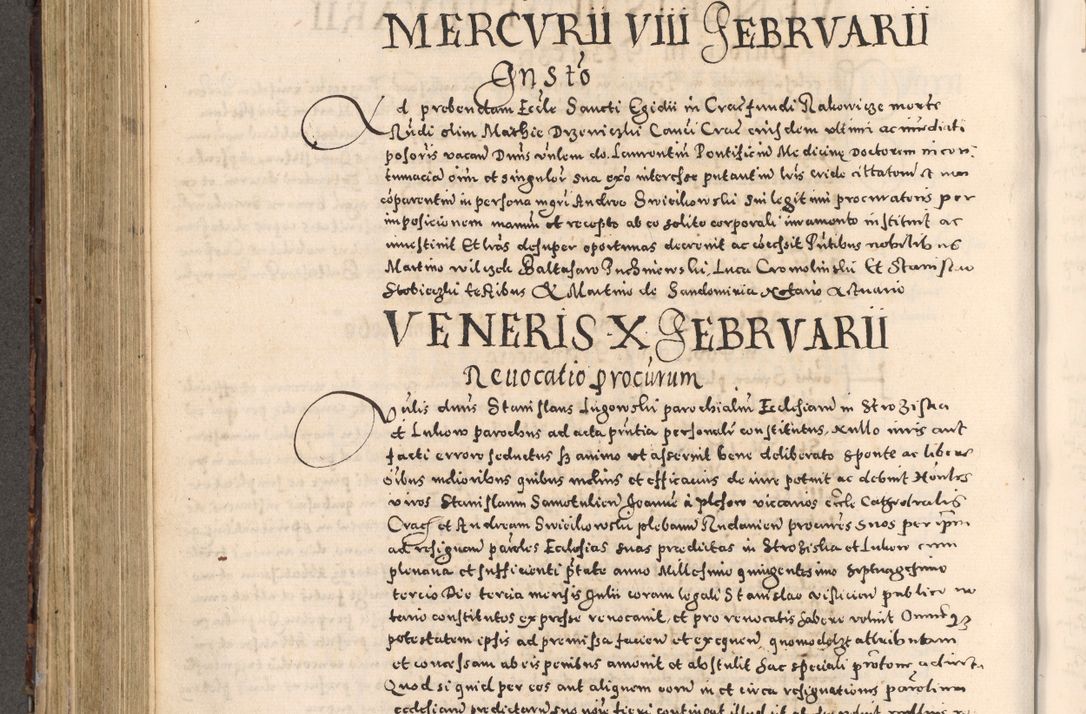 MERCVRII VIII FEBRVARII
Instō
Ad prebendam Eccle Sancti Egidii in Crac fundi Rakowicze morte
Nudi olim Mathie Drzewiczki Canci Crac eiusdem vltimi ac imediati
posoris vacan Dnus vnlem do. Laurentiu Pontificiu Medicine Doctorem in con
tumacia oim et singulor sua exō interesse putantiu lris cride cittatoru et non
cōparentiu in persona mgri Andree Swiecikowski sui legitimi procuratoris per
imposicionem manuu et recepto ab eo solito corporali iuramento instituit ac
inuestiuit Et lras desuper oportunas decreuit ac cōcessit Pntibus nobilibus
Martino wilczek Baltasaro Puchniewski, Luca Cromolinski Et Stanislao
Stobieczki testibus & Martino de Sandomiria Notario Actuario
VENERIS X FEBRVARII
Reuocatio procurum
Vnlis dnus Stanislaus Lugowski parochialiu Ecclesiaru in Stroziska
et Lukow parochus ad acta pntia personalr constitutus, Nullo iuris aut
facti errore seductus sz animo vt asseruit bene deliberato sponte ac libere
oibus melioribus quibus melius et efficatius de iure potuit ac debuit Hōnles
viros Stanislaum Samotulien Joanne à plesow vicarios eccle Cathedralis
Crac et Andream Swiecikowski plebanu Rudawien procures suos per ipm
ad resignan paroles Ecclesias suas predictas in Strozyska et Lukow cum
plenaria et sufficienti ptate anno Millesimo quingentesimo septuagesimo
tercio Die tercia mensis Julii coram legali Stanislao Visliciem publico no
tario constitutos expresse reuocauit, et pro reuocatis habere voluit Omnemqz
potestatem ipsis ad premissa facien et exequen quomodolzt attributam
et concessam ab eis penibus amouit et abstulit hac speciali protone adiecta
Quod si quid per eos aut aliquem eoru in et circa resignationes parolium
ecclesiaru predictaru suo noie fieri contingat illud